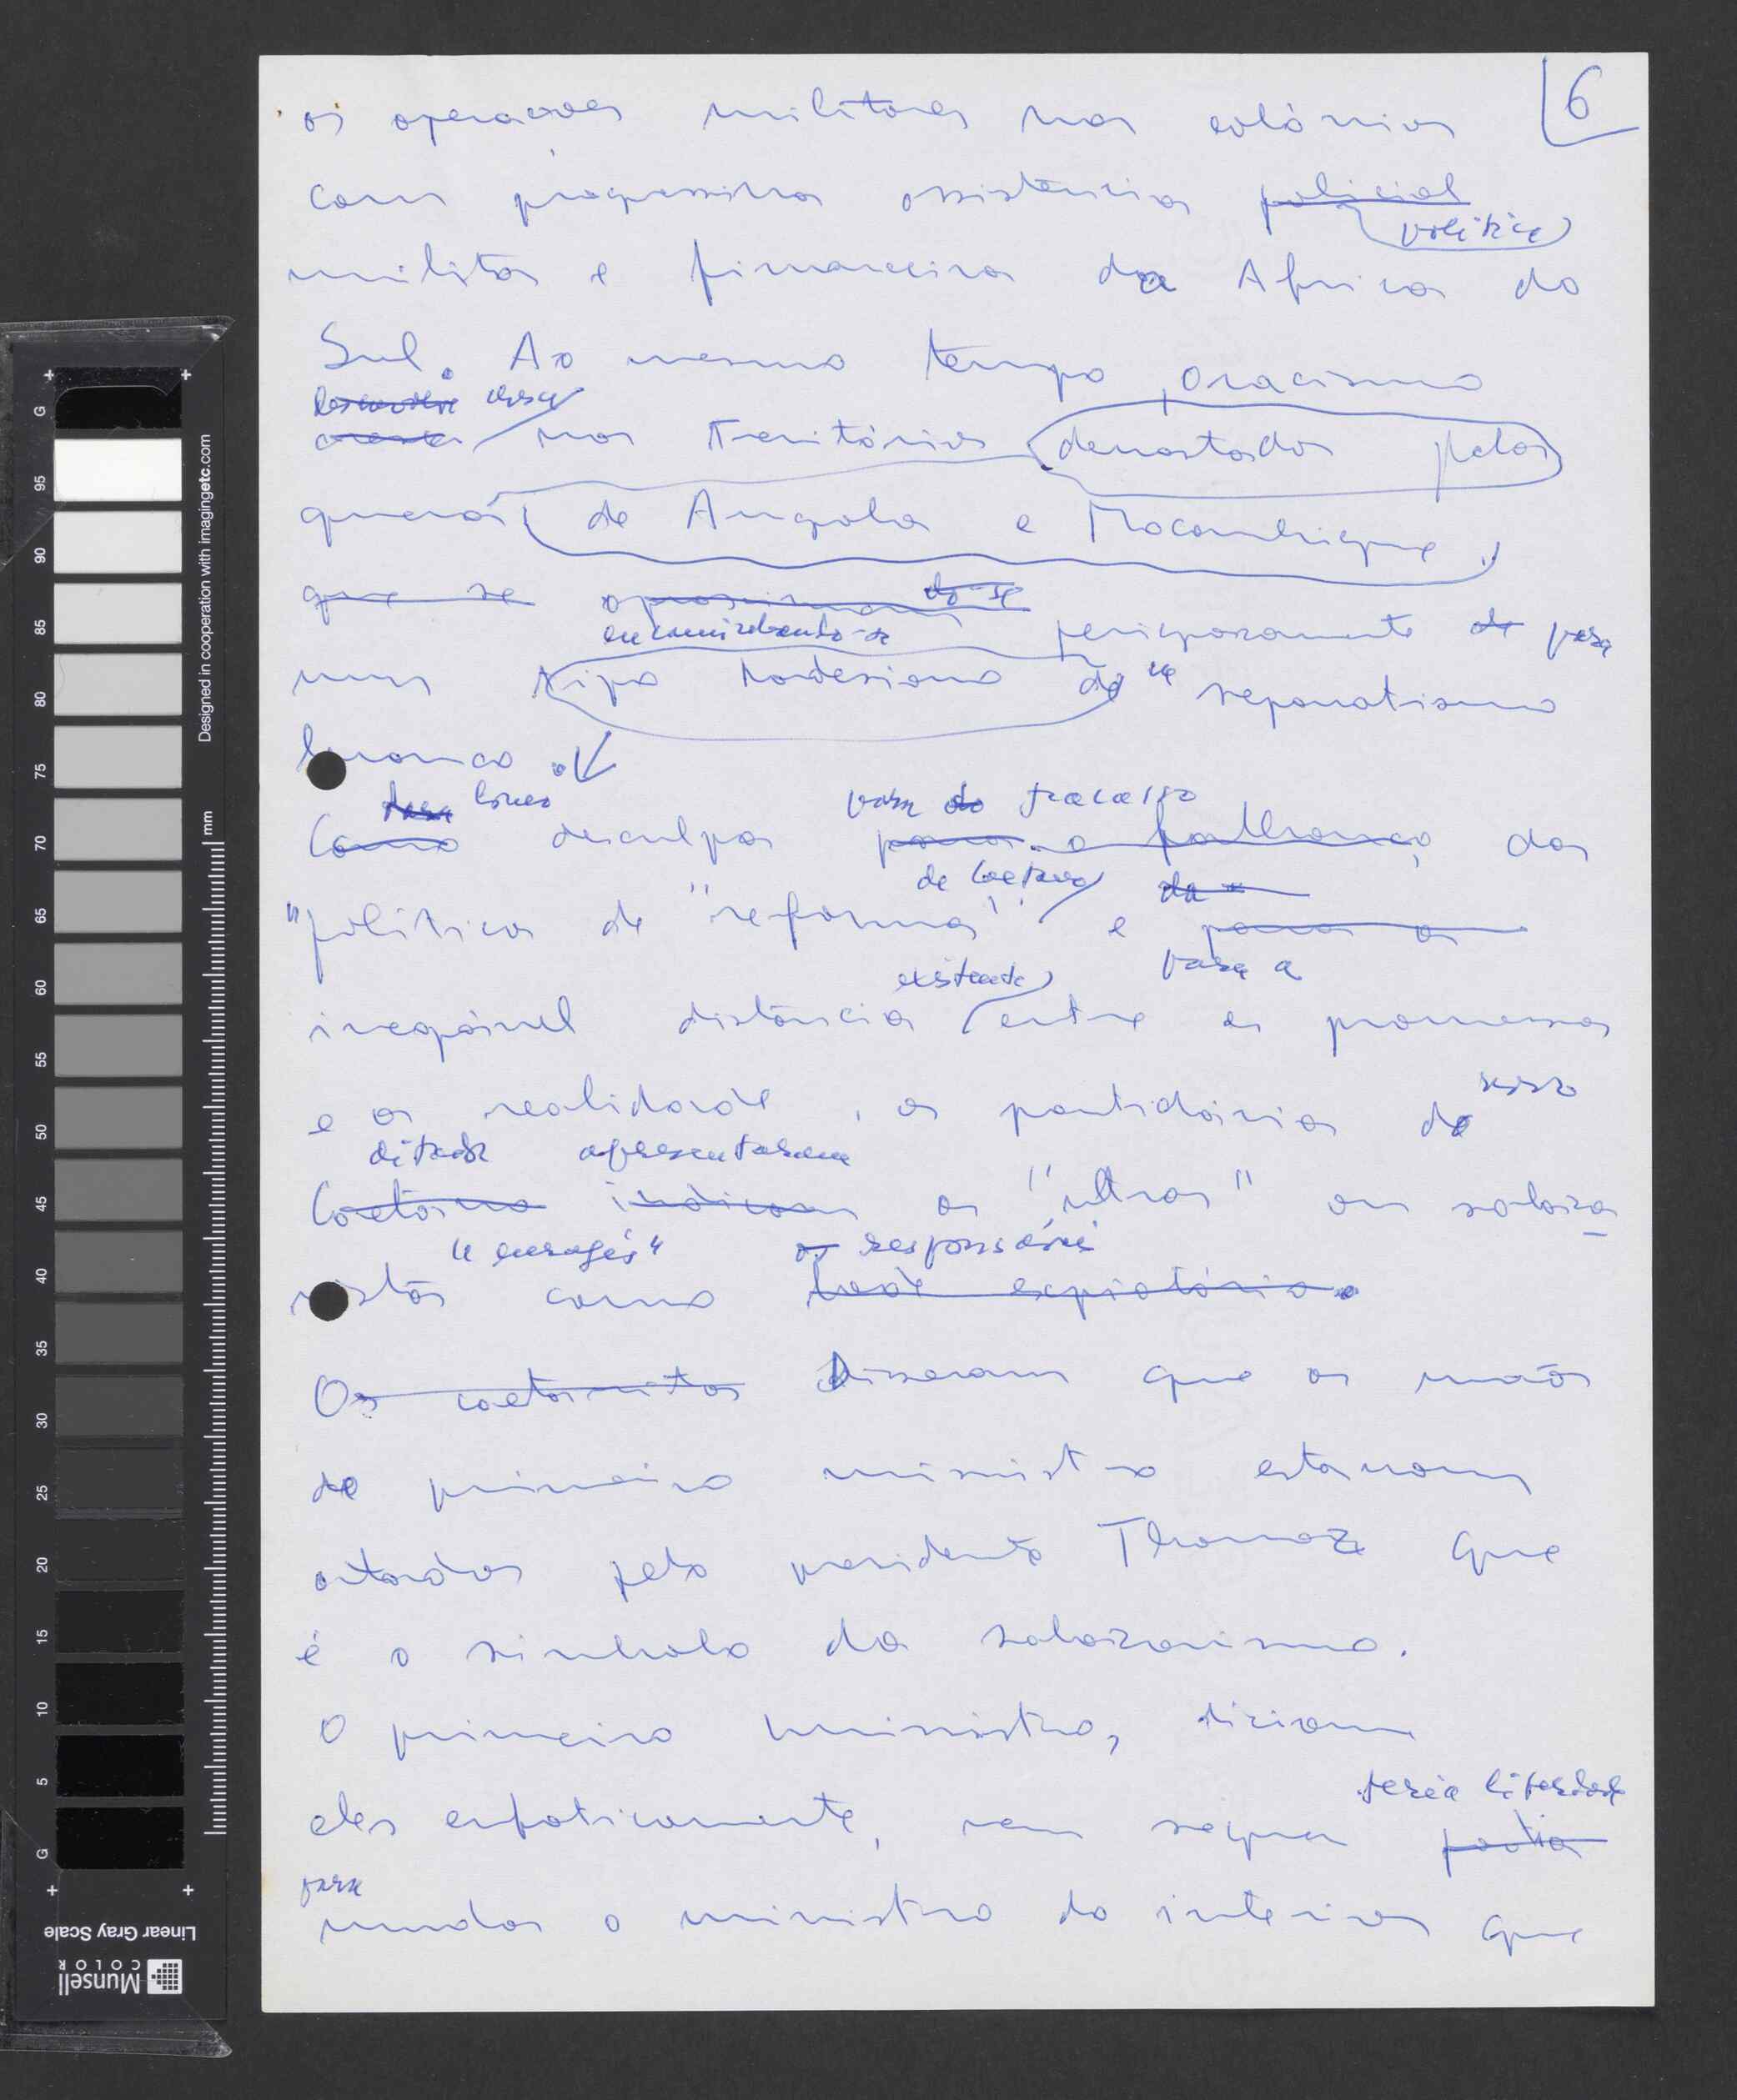 6
as operações militares nas colónias
com progressiva assistência policial
política
militar e financeira da Africa do
Sul. Ao mesmo tempo, o racismo
cresce
nos territórios devastados pelas
guerras de Angola e Moçambique,
que se aproximam do-se
encaminhando-se perigosamente de para
um tipo rodesiano de "separatismo
branco.
Como
desculpa para do fracasso
para a falhança da
"política de "reforma" de Caetano e da
para a
existente
irregável distância entre as promessas
e a realidade, os partidários do
novo
ditador apresentaram
Caetano indicam os "ultras" ou salaza
"enragés" os responsáveis
ristas como bode expiatório.
Os caetanistas Disseram que as mãos
do primeiro ministro estavam
atadas pelo presidente Thomaz que
é o simbolo do salazarismo.
O primeiro ministro, diziam
teria liberdade
eles enfaticamente, nem sequer podia
para
mudar o ministro do interior que
Designed in cooperation with imagingetc.com
mm
G
95
90
85
80
75
70
65
60
55
50
45
40
35
30
25
20
15
10
5
G
Linear Gray Scale
Munsell
COLOR